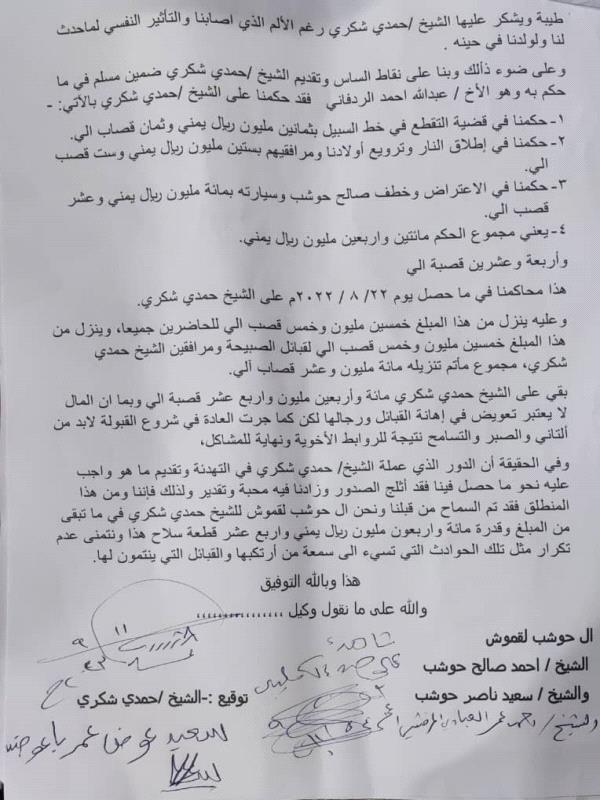 طيبة ويشكر عليها الشيخ /حمدي شكري رغم الألم الذي اصابنا والتأثير النفسي لماحدث
لنا ولولدنا في حينه .
وعلى ضوء ذألك وبنا على نقاط الساس وتقديم الشيخ /حمدي شكري ضمين مسلم في ما
حكم به وهو الأخ / عبدالله احمد الردفاني فقد حكمنا على الشيخ /حمدي شكري بالآتي: -
١- حكمنا في قضية التقطع في خط السبيل بثمانين مليون ريال يمني وثمان قصاب الي.
٢- حكمنا في إطلاق النار وترويع أولادنا ومرافقيهم بستين مليون ريال يمني وست قصب
الي.
٣- حكمنا في الاعتراض وخطف صالح حوشب وسيارته بمائة مليون ريال يمني وعشر
قصب الي.
٤- يعني مجموع الحكم مائتين واربعين مليون ريال يمني.
وأربعة وعشرين قصبة الي
هذا محاكمنا في ما حصل يوم ٢٢/ ٨ / ٢٠٢٢م على الشيخ حمدي شكري.
وعليه ينزل من هذا المبلغ خمسين مليون وخمس قصب الي للحاضرين جميعا، وينزل من
هذا المبلغ خمسين مليون وخمس قصب الي لقبائل الصبيحة ومرافقين الشيخ حمدي
شكري، مجموع مأتم تنزيله مائة مليون وعشر قصاب آلي.
بقي على الشيخ حمدي شكري مائة وأربعين مليون واربع عشر قصبة الي وبما ان المال
لا يعتبر تعويض في إهانة القبائل ورجالها لكن كما جرت العادة في شروع القبولة لابد من
ألتاني والصبر والتسامح نتيجة للروابط الأخوية ونهاية للمشاكل،
وفي الحقيقة أن الدور الذي عملة الشيخ/ حمدي شكري في التهدئة وتقديم ما هو واجب
عليه نحو ما حصل فينا فقد أثلج الصدور وزادنا فيه محبة وتقدير ولذلك فإننا ومن هذا
المنطلق فقد تم السماح من قبلنا ونحن ال حوشب لقموش للشيخ حمدي شكري في ما تبقى
من المبلغ وقدرة مائة واربعون مليون ريال يمني واربع عشر قطعة سلاح هذا ونتمنى عدم
تكرار مثل تلك الحوادث التي تسيء الى سمعة من أرتكبها والقبائل التي ينتمون لها.
هذا وبالله التوفيق
والله على ما نقول وكيل ،،،،،،،،،،،،،،،،
ال حوشب لقموش
الشيخ / احمد صالح حوشب
والشيخ / سعيد ناصر حوشب توقيع :-الشيخ /حمدي شكري
سعيد عوض عمر باعوضه